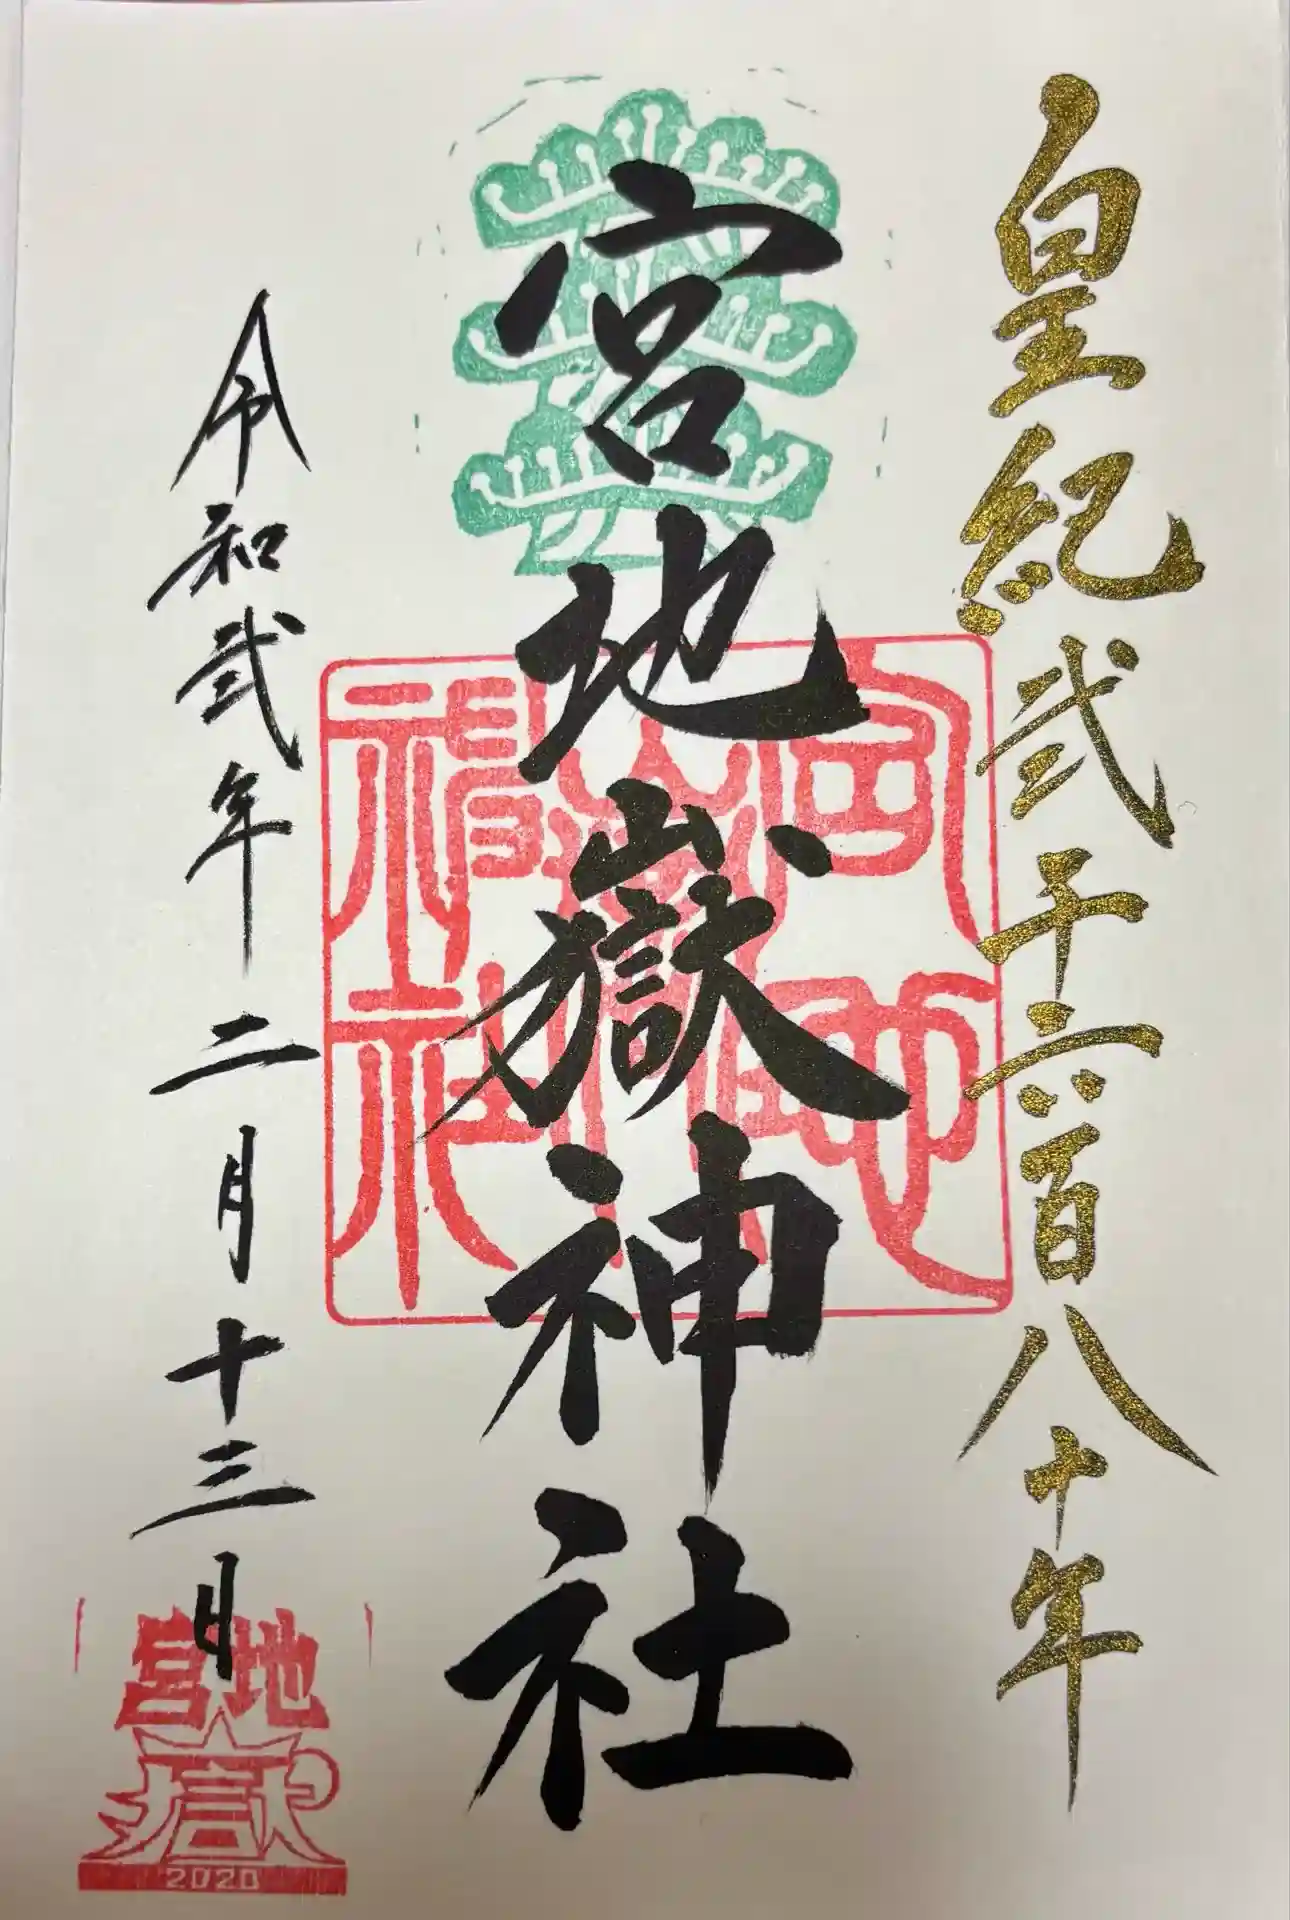 皇紀弐千六百八十年
宮地嶽神社
宮地嶽神社
令和弐年二月十三日
宮地
嶽
2020